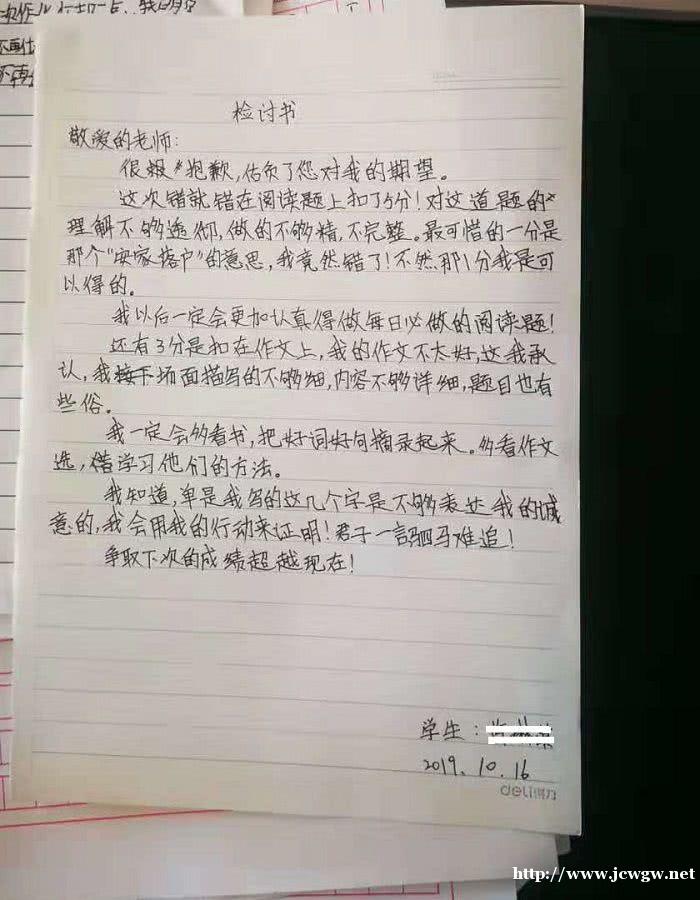 检讨书
敬爱的老师:
很抱歉,估负了您对我的期望。
这次错就错在阅读题上扣了5分!对这道题的
理解不够透彻,做的不够精,不完整。最可惜的一分是
那个"安家落户"的意思,我竟然错了!不然那1分我是可
以得的。
我以后一定会更加认真得做每日必做的阅读题!
还有3分是扣在作文上,我的作文不太好,这我承
认,我场面描写的不够细,内容不够详细,题目也有
些俗。
我一定会多看书,把好词好句摘录起来。多看作文
选,借学习他们的方法。
我知道,单是我写的这几个字是不够表达我的诚
意的,我会用我的行动来证明!君子一言驷马难追!
争取下次的成绩超越现在!
学生:
2019.10.16
deli得力
http://www.jcwgw.net